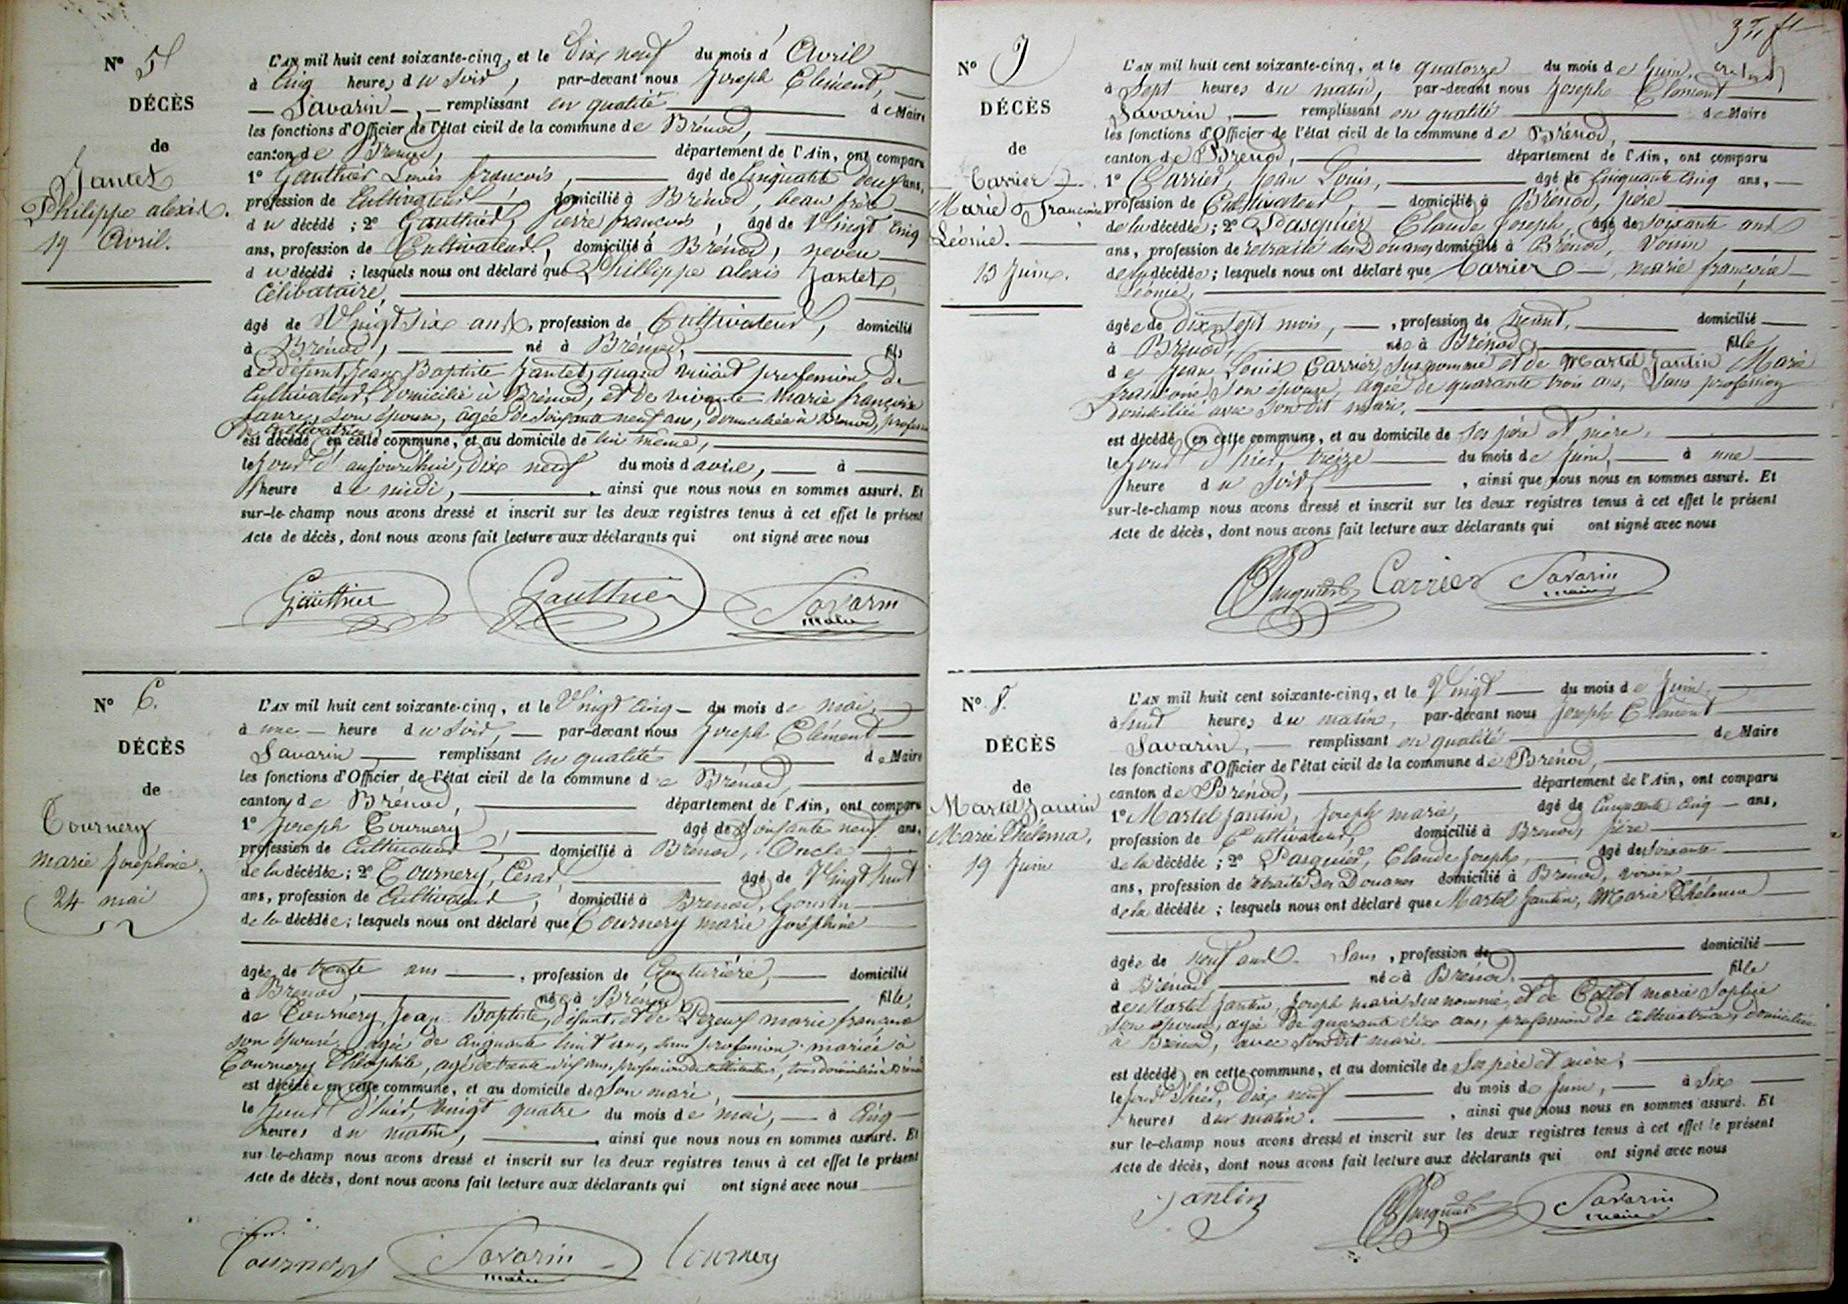 N° 5
DÉCÈS
de
Jantet
Philippe alexis.
19 Avril.
L'AN mil huit cent soixante-cinq, et le dix neuf du mois d'Avril
à Cinq heures du Soir, par-devant nous Joseph Clément,
Savarin, remplissant en qualité de Maire
les fonctions d'Officier de l'état civil de la commune de Brénod,
canton de Brénod, département de l'Ain, ont comparu
1° Gauthier Louis françois, âgé de Cinquante deux ans,
profession de Cultivateur, domicilié à Brénod, beau frère
du décédé ; 2° Gauthier, pierre francois, âgé de Vingt cinq
ans, profession de Cultivateur, domicilié à Brénod, neveu
du décédé ; lesquels nous ont déclaré que Phillippe alexis Jantet,
Célibataire,
âgé de Vingt six ans, profession de Cultivateur, domicilié
à Brénod, né à Brénod, fils
de Défunt Jean Baptiste Jantet, quand vivait profession de
Cultivateur, domicilié à Brénod, et de vivante Marie françoise
favre, son épouse, agée de soixante neuf ans, domiciliée à Brénod, profession
de Cultivatrice,
est décédé en cette commune, et au domicile de lui même,
le Jour d'aujourd'hui, dix neuf du mois d'avril, à
heure de midi, ainsi que nous nous en sommes assuré. Et
sur-le-champ nous avons dressé et inscrit sur les deux registres tenus à cet effet le présent
Acte de décès, dont nous avons fait lecture aux déclarants qui ont signé avec nous
Gauthier Gauthier Savarin
maire
N° 6.
DÉCÈS
de
Tournery
marie Joséphine,
24 mai
L'AN mil huit cent soixante-cinq, et le Vingt cinq du mois de mai,
à une heure du Soir, par-devant nous Joseph Clément
Savarin remplissant en qualité de Maire
les fonctions d'Officier de l'état civil de la commune de Brénod,
canton de Brénod, département de l'Ain, ont comparu
1° Joseph Tournery, âgé de Soixante neuf ans,
profession de Cultivateur domicilié à Brénod, Oncle
de la décédée ; 2° Tournery, César, âgé de Vingt huit
ans, profession de Cultivateur, domicilié à Brénod, Cousin
de la décédée ; lesquels nous ont déclaré que Tournery marie Joséphine
âgée de trente ans, profession de Couturière, domicilié
à Brénod, née à Brénod fille,
de Tournery, Jean Baptiste, défunt, et de Pezeux marie françoise
son épouse, agée de cinquante huit ans, sans profession. mariée à
Tournery Théophile, agé de trente six ans, profession de cultivateur, tous domiciliés à Brénod
est décédée en cette commune, et au domicile de Son mari,
le Jour d'hier, vingt quatre du mois de mai, à Cinq
heures du matin, ainsi que nous nous en sommes assuré. Et
sur-le-champ nous avons dressé et inscrit sur les deux registres tenus à cet effet le présent
Acte de décès, dont nous avons fait lecture aux déclarants qui ont signé avec nous
Tournery Savarin Tournery
maire
N° 7
DÉCÈS
de
Carrier
Marie Françoise
Léonie.
13 Juin.
L'AN mil huit cent soixante-cinq, et le quatorze du mois de Juin,
à Sept heures du matin, par-devant nous Joseph Clément
Savarin, remplissant en qualité de Maire
les fonctions d'Officier de l'état civil de la commune de Brénod,
canton de Brénod, département de l'Ain, ont comparu
1° Carrier, Jean Louis, âgé de Cinquante cinq ans,
profession de Cultivateur, domicilié à Brénod, père
de la décédée ; 2° Pasquier Claude Joseph, âgé de Soixante ans
ans, profession de retraité des Douanes domicilié à Brénod, Voisin,
de la décédée ; lesquels nous ont déclaré que Carrier, marie françoise
Léonie,
âgée de dix sept mois, profession de néant, domicilié
à Brénod, née à Brénod, fille
de Jean Louis Carrier, susnommé et de Martel Jantin Marie
françoise, son épouse agée de quarante trois ans, sans profession
domiciliée avec Son dit mari.
est décédé en cette commune, et au domicile de Ses père et mère.
le Jour d'hier, treize du mois de Juin, à une
heure du Soir, ainsi que nous nous en sommes assuré. Et
sur-le-champ nous avons dressé et inscrit sur les deux registres tenus à cet effet le présent
Acte de décès, dont nous avons fait lecture aux déclarants qui ont signé avec nous
Pasquier Carrier Savarin
maire
N° 8.
DÉCÈS
de
Martel Jantin
Marie Thélema,
19 Juin
L'AN mil huit cent soixante-cinq, et le Vingt du mois de Juin,
à huit heures du matin, par-devant nous Joseph Clément
Savarin, remplissant en qualité de Maire
les fonctions d'Officier de l'état civil de la commune de Brénod,
canton de Brénod, département de l'Ain, ont comparu
1° Martel Jantin, Joseph marie, âgé de Cinquante cinq ans,
profession de Cultivateur, domicilié à Brénod, père
de la décédée ; 2° Pasquier, Claude Joseph, âgé de Soixante
ans, profession de retraité des Douanes domicilié à Brénod, voisin
de la décédée ; lesquels nous ont déclaré que Martel Jantin, Marie Thélema
âgée de neuf ans. Sans, profession de domicilié
à Brénod née à Brénod. fille
de Martel Jantin, Joseph marie Susnommé, et de Collet marie Sophie
Son épouse, agée de quarante six ans, profession de cultivatrice, domiciliée
à Brénod, avec Son dit mari.
est décédé en cette commune, et au domicile de Ses père et mère,
le jour d'hier, dix neuf du mois de Juin, à Six
heures du matin. ainsi que nous nous en sommes assuré. Et
sur le-champ nous avons dressé et inscrit sur les deux registres tenus à cet effet le présent
Acte de décès, dont nous avons fait lecture aux déclarants qui ont signé avec nous
Jantin Pasquier Savarin
maire